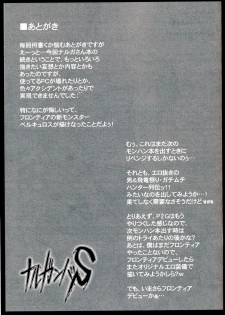 ■あとがき
毎回何書くか悩むあとがきですが
えーっと…今回ナルガさん本の
続きということで、もっといろいろ
描きたい妄想とか内容とかも
あったのですが、
使ってるPCが壊れたりとか、
色々アクシデントがあったりで
実現できませんでした。
特になにが悔しいって、
フロンティアの新モンスター
ベルキュロスが描けなかったことだよぅ!
むぅ、これはまた次の
モンハン本を出すときに
リベンジするしかないのぅ…
それとも、エロ抜きの
男&飛竜祭り・ガチムチ
ハンター列伝っ!!
みたいなのを出してみようか…
果てしなく需要なさそうだけどwww
とりあえず、P2Gはもう
やりつくした感じなので、
次にモンハン本出す時は
例のトライあたりの後かな?
あとは、僕はまだフロンティア
やったことないので、
フロンティアデビューしたら
またオリジナルエロ装備で
描いてみようかなw
でも、いまさらフロンティア
デビューか…
ナルガンバッS